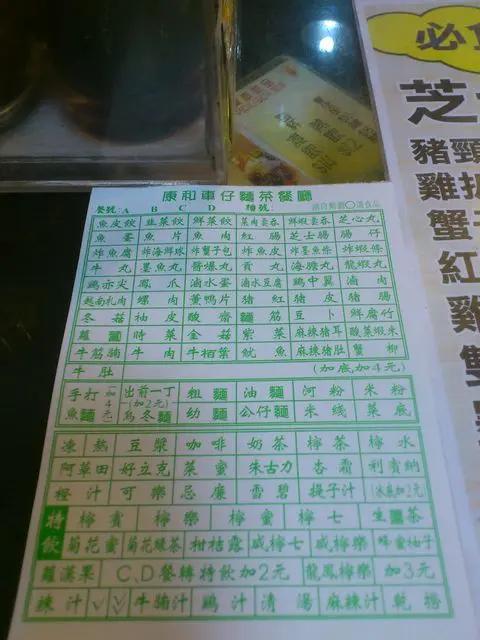 康和車仔麵茶餐廳
餐號:A B C D 檯號:
魚皮餃 韭菜餃 鮮菜餃 菜肉雲吞 鮮蝦雲吞 芝心丸
魚蛋 魚片 魚肉 紅腸 芝士腸 腸仔
炸魚腐 炸海鮮球 炸蟹子包 炸魚皮 炸墨魚條 炸蝦條
牛丸 墨魚丸 貢丸 海膽丸 龍蝦丸
鷄亦尖 鳳爪 滷水蛋 滷水豆腐 鷄中翼 滷肉
越南扎肉 螺肉 黃鴨片 豬紅 豬皮 豬腸
冬菇 柚皮 酸齋 麵筋 豆卜 鮮腐竹
蘿蔔 時菜 金菇 紫菜 麻辣豬耳 酸菜蝦米
牛筋腩 牛肉 牛栢葉 魷魚 麻辣豬肚 蟹柳
牛肚 (加底加4元)
手打魚麵 加4元 出前一丁 (加2元) 烏冬麵 粗麵 油麵 河粉 米粉
幼麵 公仔麵 米綫 菜底
凍 熱 豆漿 咖啡 奶茶 檸茶 檸水
阿華田 好立克 菜蜜 朱古力 杏霜 利賓納
橙汁 可樂 忌廉 雪碧 提子汁 (凍飲加2元)
特飲 檸賓 檸樂 檸蜜 檸七
菊花蜜 菊花綠茶 柑桔露 咸檸七 咸檸樂 蜂蜜柚子
羅漢果 C,D餐轉特飲加2元 龍鳳檸樂 加3元
辣汁 牛腩汁 鷄汁 清湯 麻辣汁 乾撈
必
芝
豬頸
雞扒
蟹
紅
雞
雙